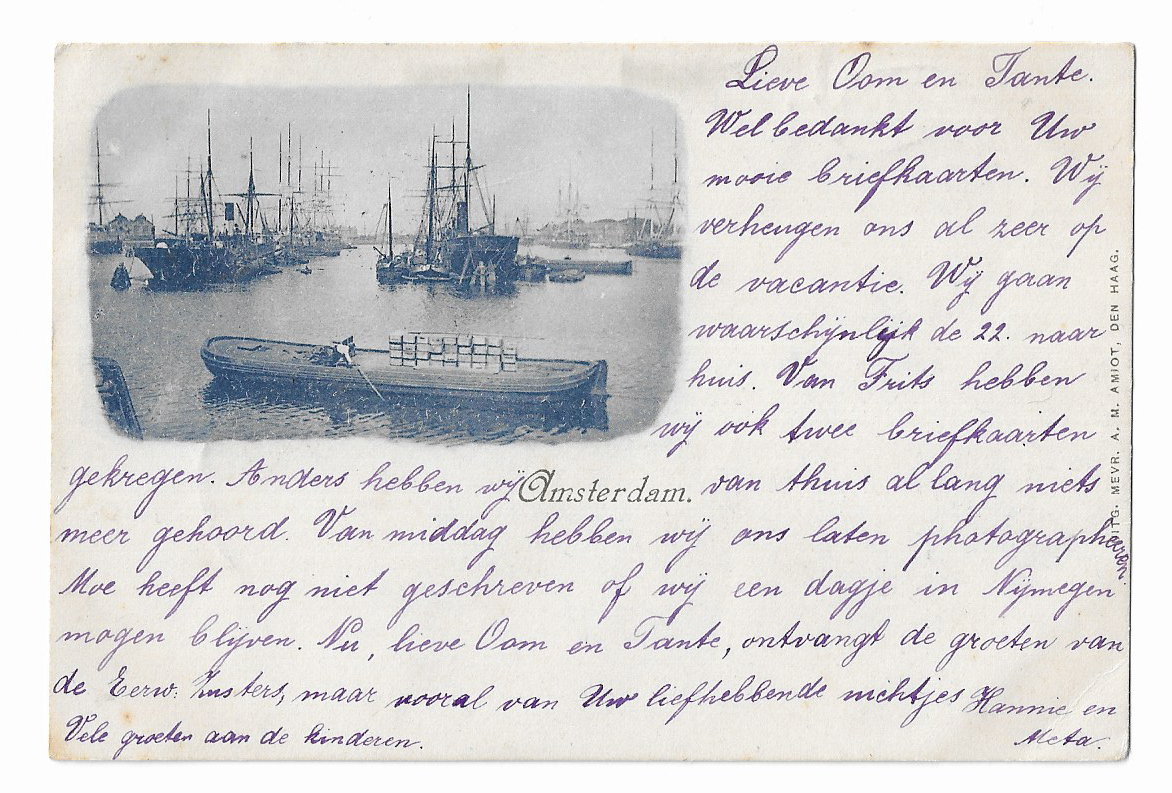 Lieve Oom en Tante.
Wel bedankt voor Uw
mooie briefkaarten. Wij
verheugen ons al zeer op
de vacantie. Wij gaan
waarschijnlijk de 22. naar
huis. Van Frits hebben
wij ook twee briefkaarten
gekregen. Anders hebben wij Amsterdam. van thuis al lang niets
meer gehoord. Van middag hebben wij ons laten photographeeren.
Moe heeft nog niet geschreven of wij een dagje in Nijmegen
mogen blijven. Nu, lieve Oom en Tante, ontvangt de groeten van
de Eerw. Zusters, maar vooral van Uw liefhebbende nichtjes Hannie en
Vele groeten aan de kinderen. Meta.
UITG. MEVR. A. M. AMIOT, DEN HAAG.